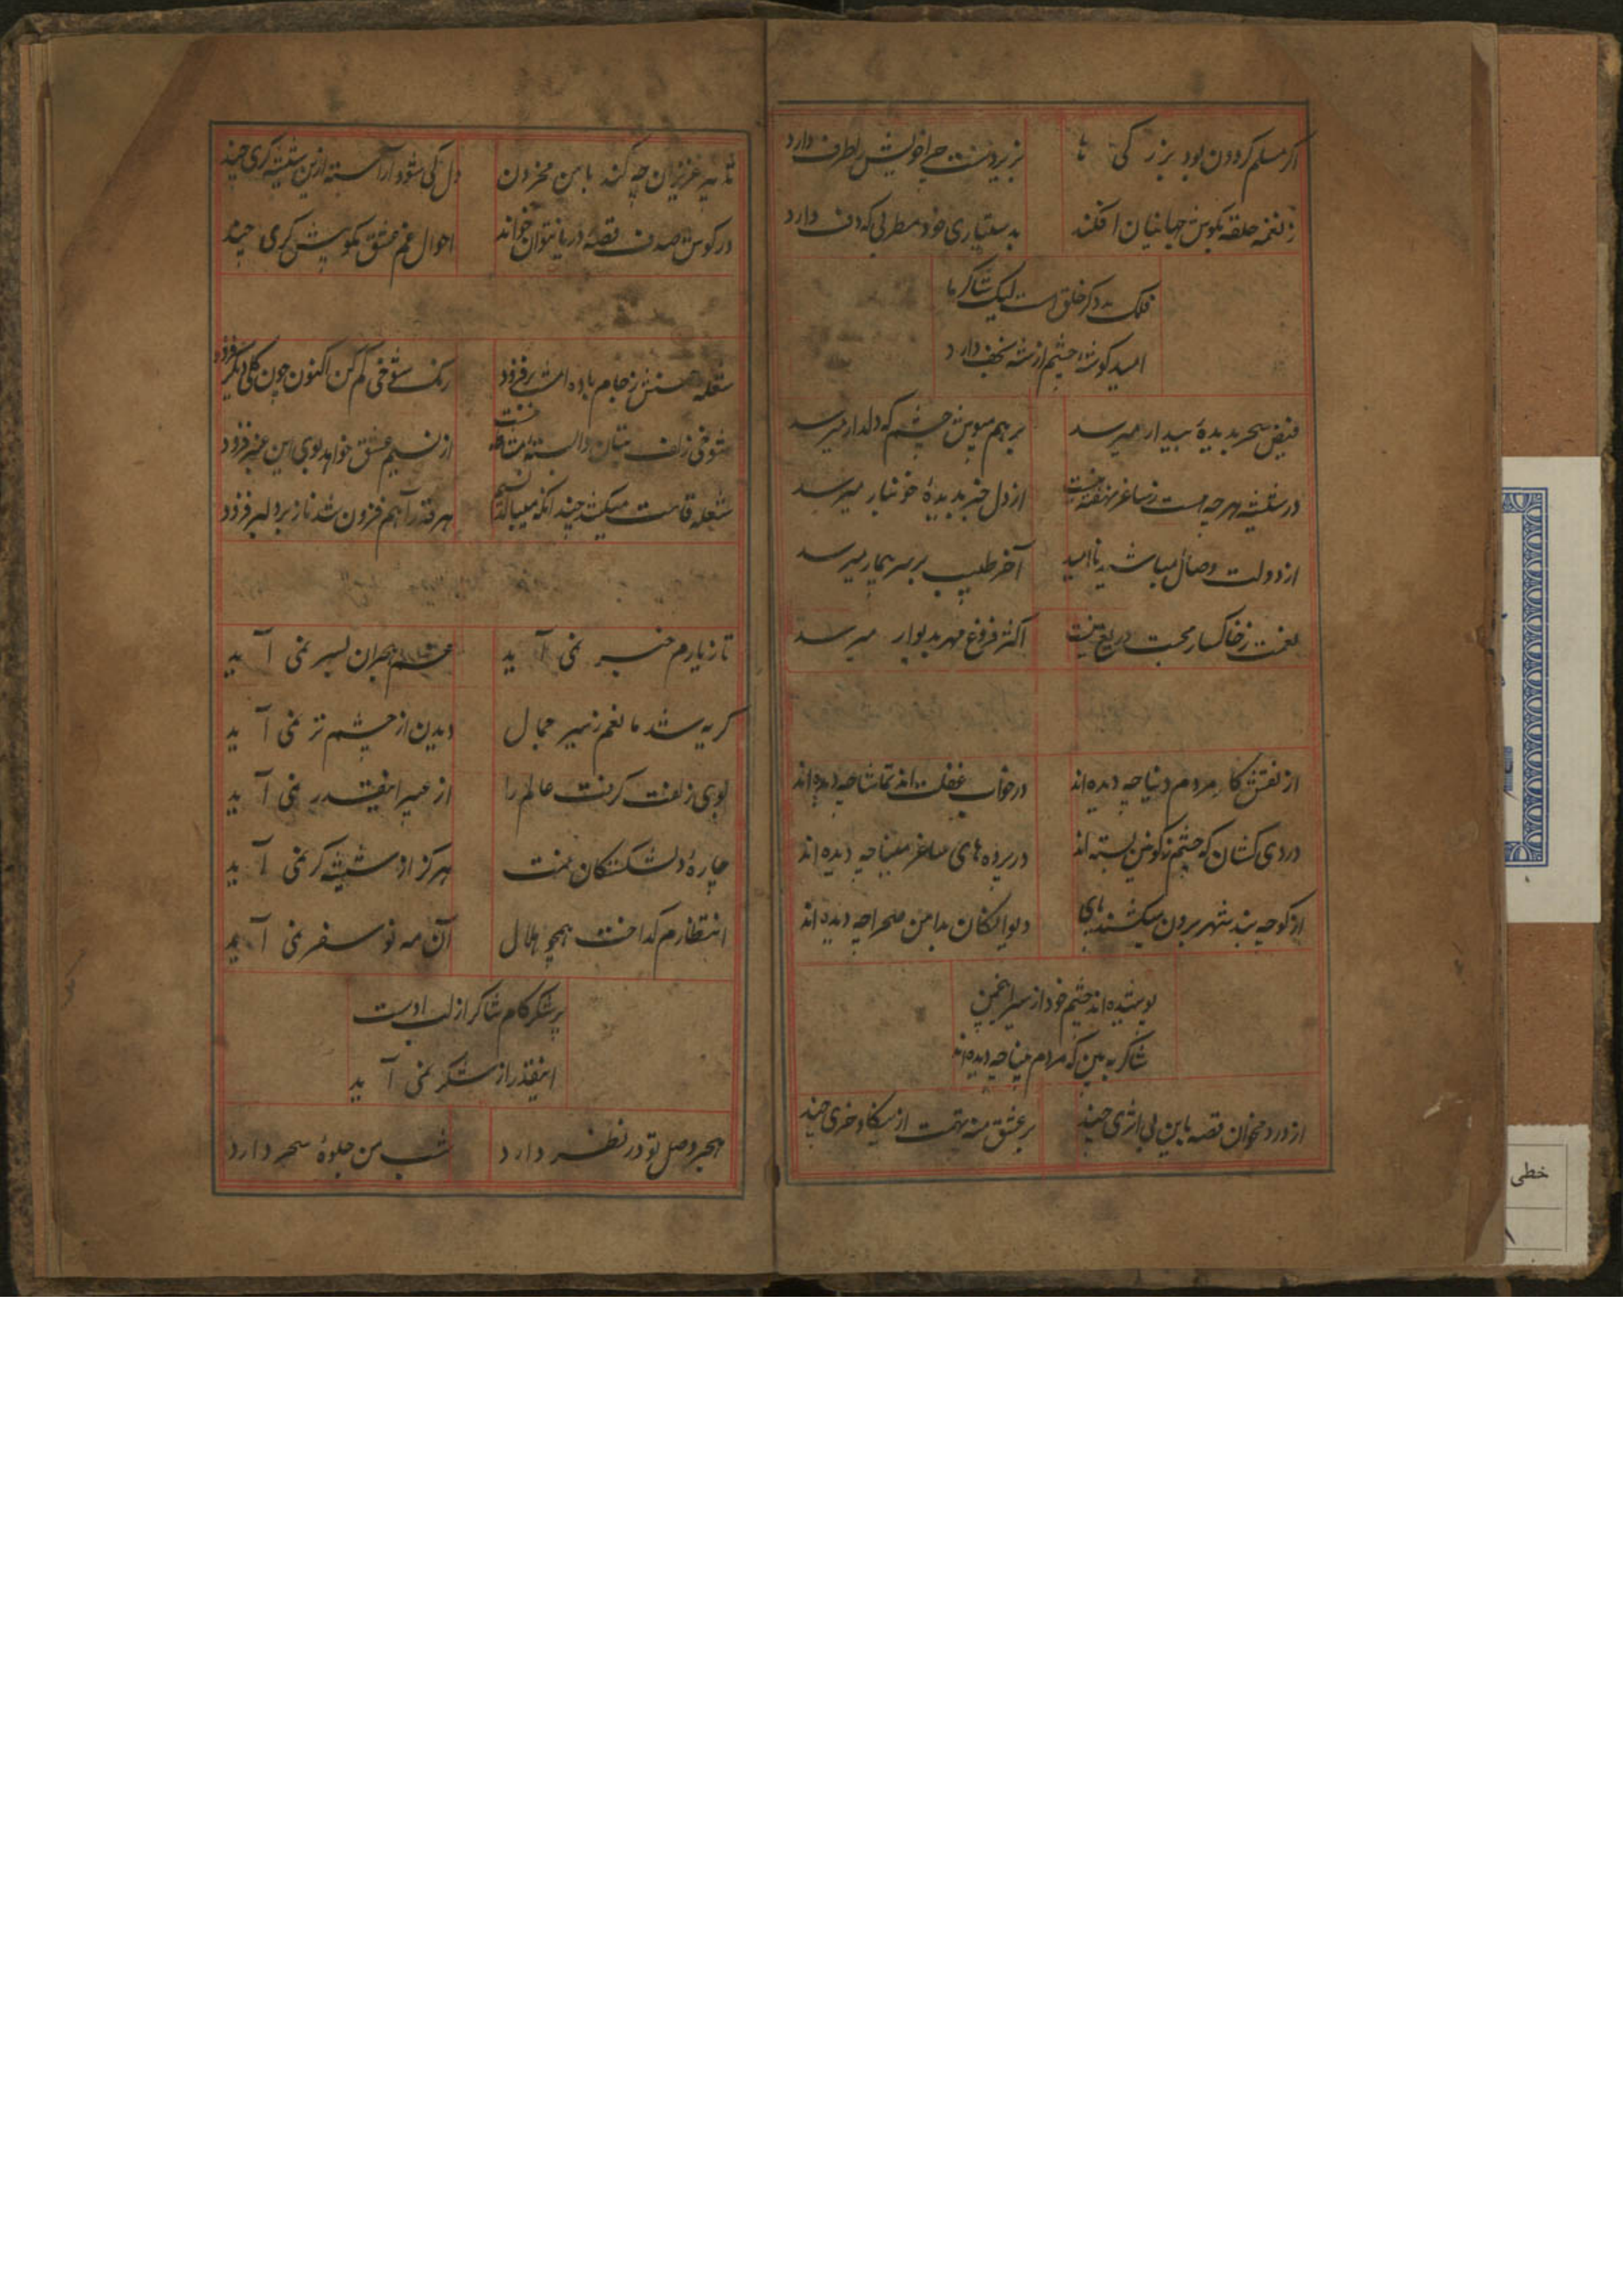 اکر مسلم کردون بود بزرکی ها    بزیردست چرا خویش بطرف دارد
ز نغمه حلقه بکوش جهانیان افکند    بدستیاری خود مطربی که دف دارد
فلک دکر خلق است لیک شاکر ما
امید کوشه چشم از شه نجف دارد
فیض سحر بدیدهٔ بیدار میرسد    برهم مپوش چشم که دلدار میرسد
در شیشه هرچه هست ز ساغر نهفته نیست    از دل خبر بدیدهٔ خونبار میرسد
از دولت وصال مباشید ناامید    آخر طبیب بر سر بیمار میرسد
نعمت ز خاکسار محبت دریغ نیست    اکثر فروغ مهر بدیوار میرسد
از نقش کار مردم دنیا چه دیده‌اند    در خواب غفلت‌اند تماشا چه دیده‌اند
دردی کشان که چشم ز کونین بسته‌اند    در پرده‌های ساغر مینا چه دیده‌اند
از کوچه بند شهر برون میکشند پای    دیوانکان بدامن صحرا چه دیده‌اند
پوشیده‌اند چشم خود از سیر انجمن
شاکر ببین که مردم بینا چه دیده‌اند
از درد مخوان قصه باین بی اثری چند    بر عشق منه تهمت از خری چند
تا به عزیزان چه کند با من محزون    دل کی شود آراسته از شیشه کری چند
در کوش صدف قصه دریا نتوان خواند    احوال غم عشق بکویش کری چند
شعله حسنش ز جام باده‌اش برفزود    رنک شوخی کم کن اکنون چون کلی دیکر فزود
شوخی زلف بتان وابسته مشاطه نیست    از نسیم عشق خواهد بوی این عنبر فزود
شعله قامت میکشد چندانکه میبالد نسیم    هر قدر آهم فزون شد ناز بر دلبر فزود
تا ز یارم خبر نمی آید    غم هجران بسر نمی آید
کریه شد مانعم ز سیر جمال    دیدن از چشم تر نمی آید
بوی زلفت کرفت عالم را    از عبیر اینقدر نمی آید
چارهٔ دلشکستکان نیست    هرکز از شیشه کر نمی آید
انتظارم کداخت همچو هلال    آن مه نو سفر نمی آید
پر شکر کام شاکر از لب اوست
اینقدر از شکر نمی آید
هجر وصل تو در نظر دارد    شب من جلوهٔ سحر دارد
خطی